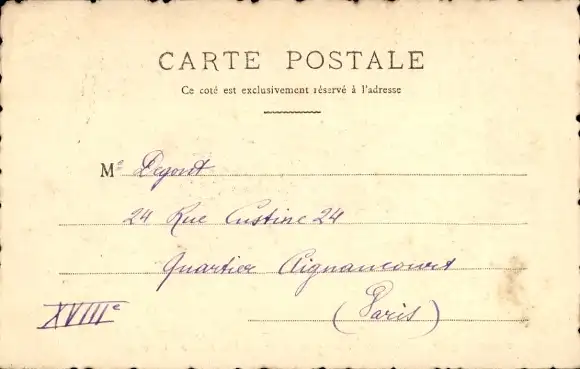 CARTE POSTALE
Ce coté est exclusivement réservé à l'adresse
Me Degout
24 Rue Custine 24
Quartier Clignancourt
XVIIIe (Paris)